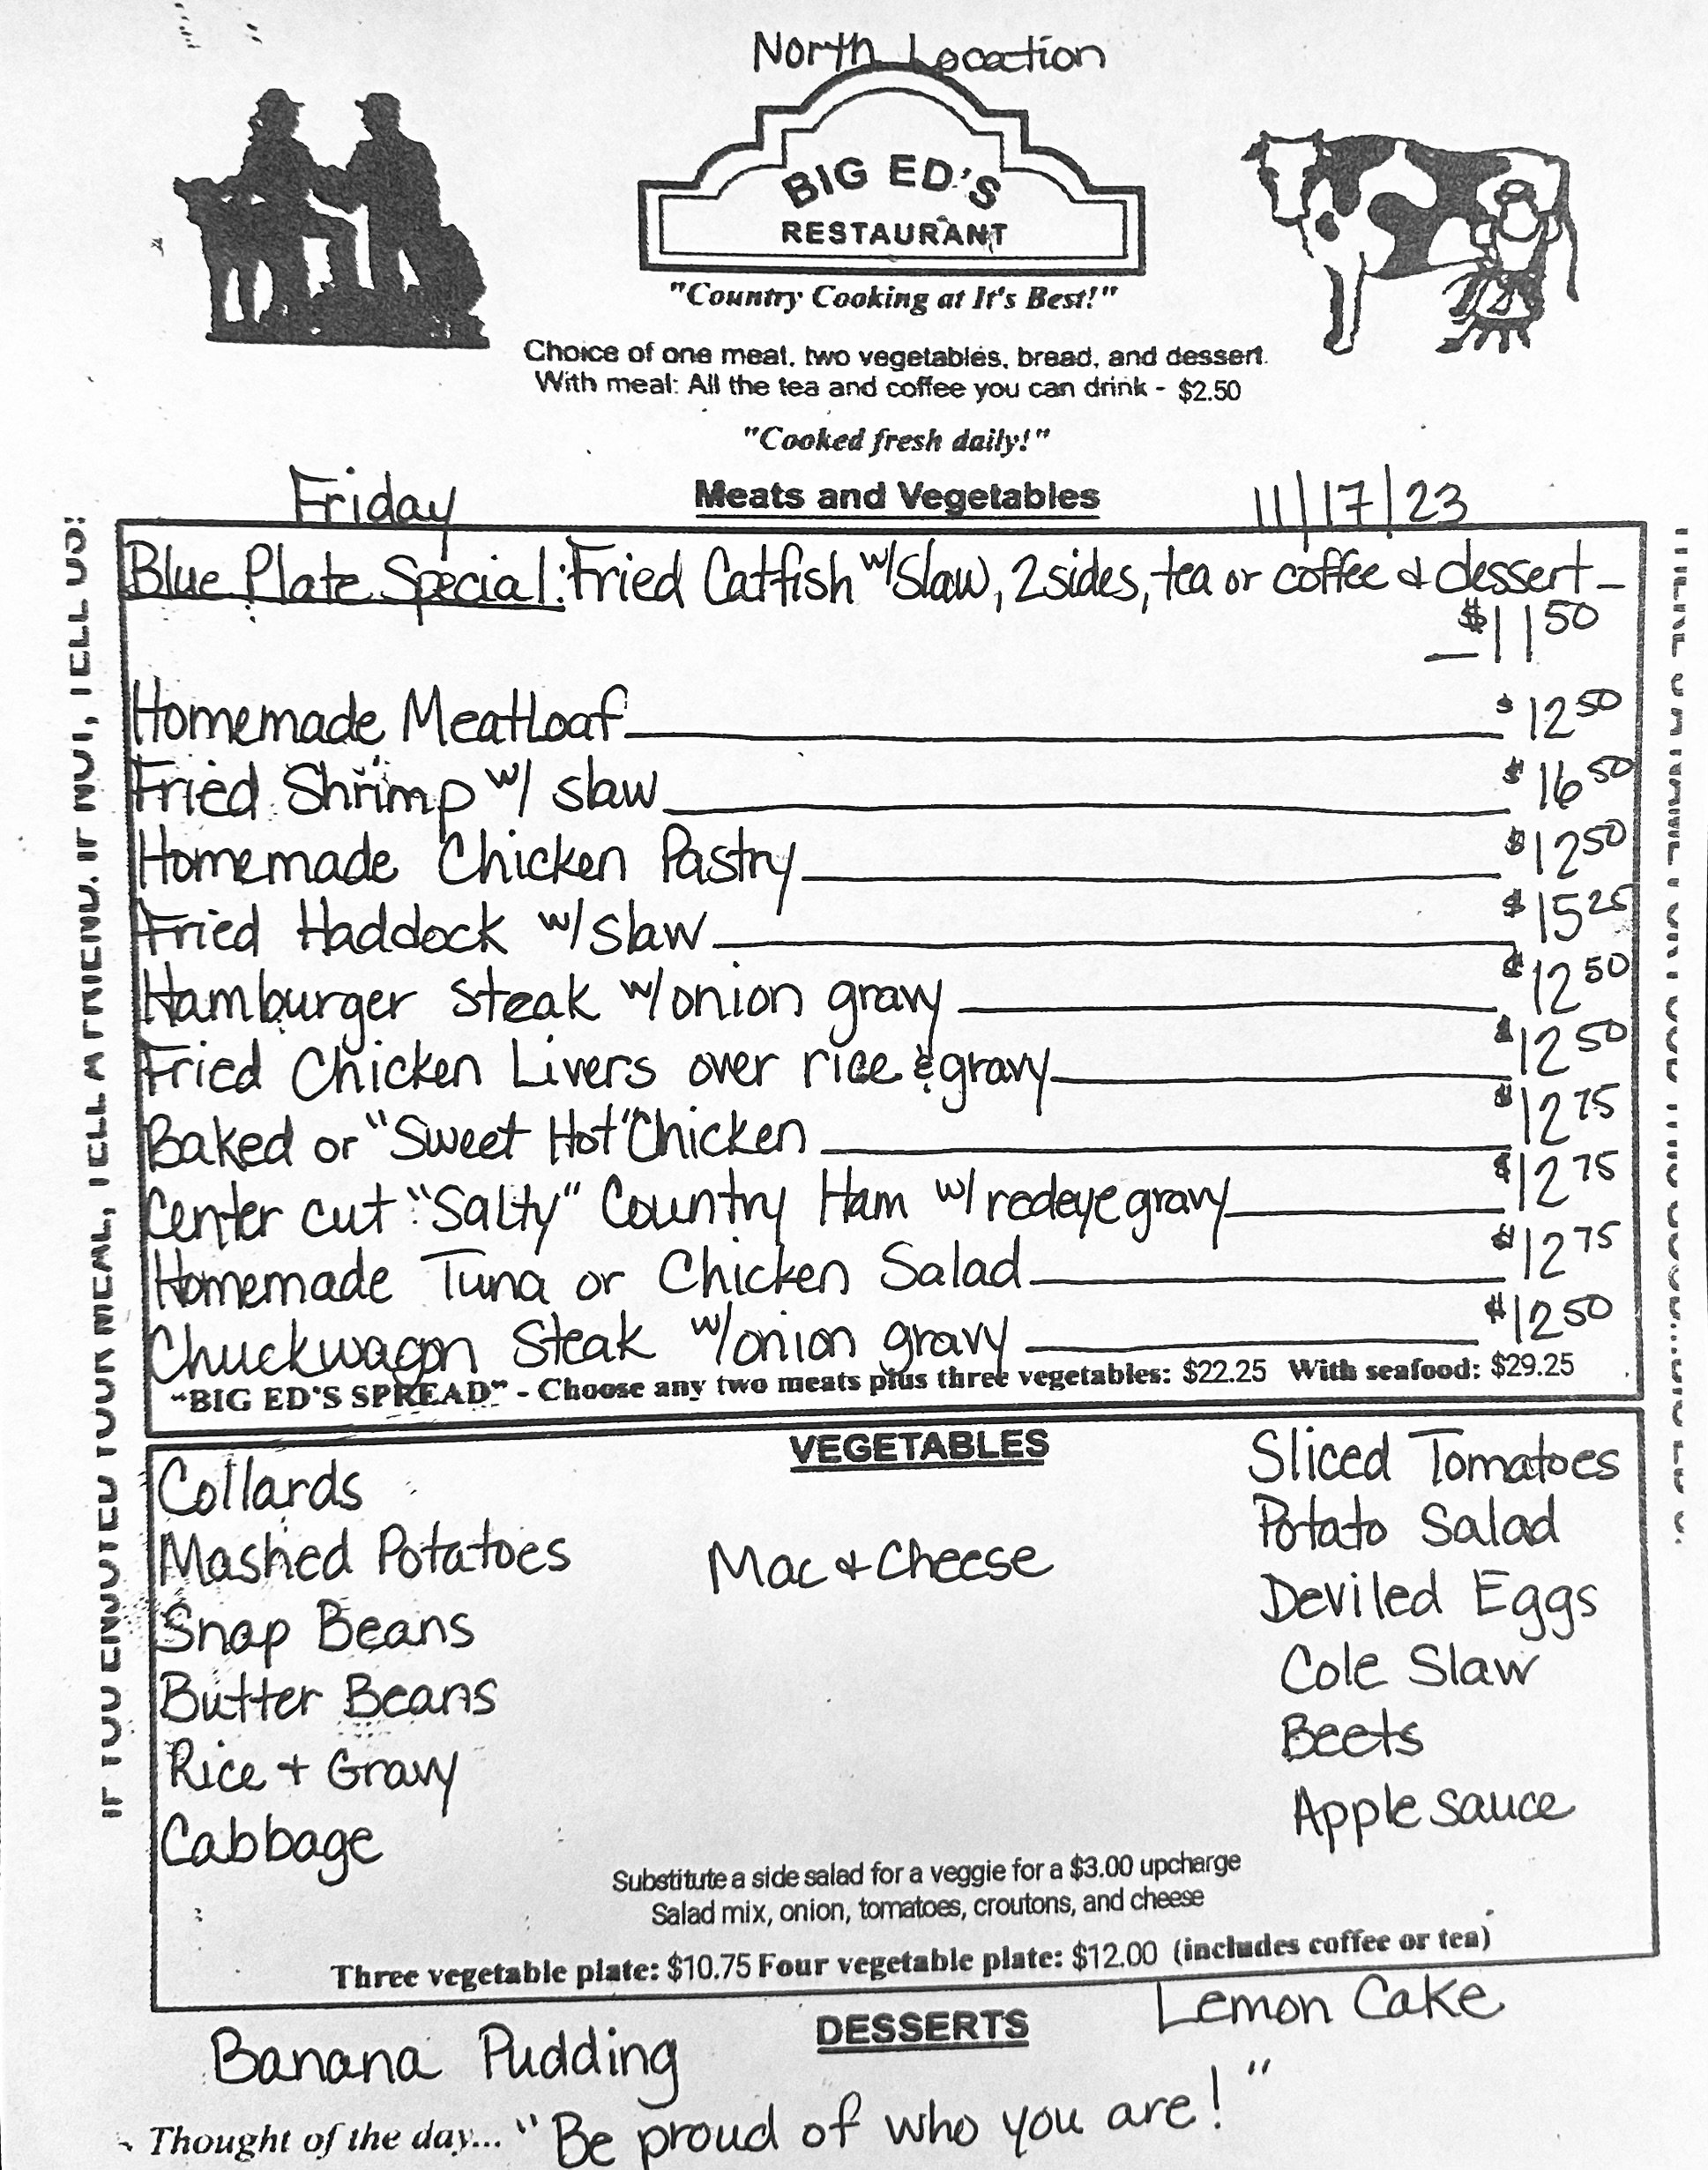 North Location
BIG ED'S
RESTAURANT
"Country Cooking at It's Best!"
Choice of one meat, two vegetables, bread, and dessert.
With meal: All the tea and coffee you can drink - $2.50
"Cooked fresh daily!"
Friday
Meats and Vegetables
11/17/23
Blue Plate Special: Fried Catfish w/ Slaw, 2 sides, tea or coffee & dessert -
- $11 50
Homemade Meatloaf $12 50
Fried Shrimp w/ slaw $16 50
Homemade Chicken Pastry $12 50
Fried Haddock w/ slaw $15 25
Hamburger Steak w/ onion gravy $12 50
Fried Chicken Livers over rice & gravy $12 50
Baked or "Sweet Hot" Chicken $12 75
Center cut "Salty" Country Ham w/ redeye gravy $12 75
Homemade Tuna or Chicken Salad $12 75
Chuckwagon Steak w/ onion gravy $12 50
"BIG ED'S SPREAD" - Choose any two meats plus three vegetables: $22.25 With seafood: $29.25
VEGETABLES
Collards
Mashed Potatoes
Snap Beans
Butter Beans
Rice + Gravy
Cabbage
Mac & Cheese
Sliced Tomatoes
Potato Salad
Deviled Eggs
Cole Slaw
Beets
Apple sauce
Substitute a side salad for a veggie for a $3.00 upcharge
Salad mix, onion, tomatoes, croutons, and cheese
Three vegetable plate: $10.75 Four vegetable plate: $12.00 (includes coffee or tea)
DESSERTS
Banana Pudding
Lemon Cake
Thought of the day... "Be proud of who you are!"
IF YOU ENJOYED YOUR MEAL, TELL A FRIEND. IF NOT, TELL US!